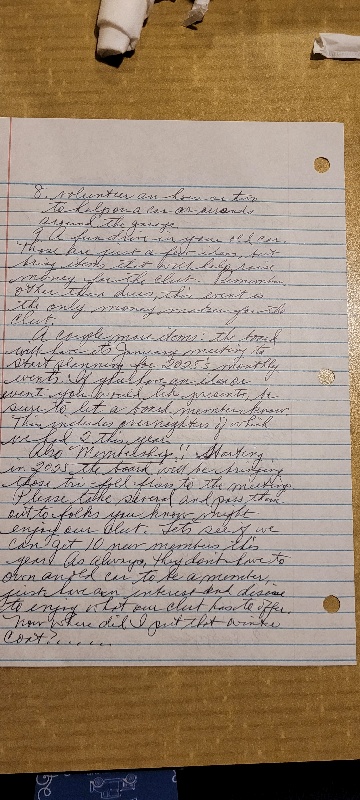 8. Volunteer an hour or two
to help on a car or
around the garage
9. A fun drive in your old car.
These are just a few ideas, but
bring items that will help raise
money for the club. Remember,
other than dues, this event is
the only money maker for the
Club.
A couple more items: the board
will have its January meeting to
start planning for 2025's monthly
events. If you have an idea or
event you would like presents, be
sure to let a board member know.
This includes overnighters of which
we had 2 this year.
Also "Membership"! Starting
in 2025 the board will be bringing
those tri-fold flyers to the meetings
Please take several and pass them
out to folks you know might
enjoy our Club. Let's see if we
can get 10 new members this
year! As always, they don't have to
own an old car to be a member,
just have an interest and desire
to enjoy what our club has to offer.
Now where did I put that winter
coat?......